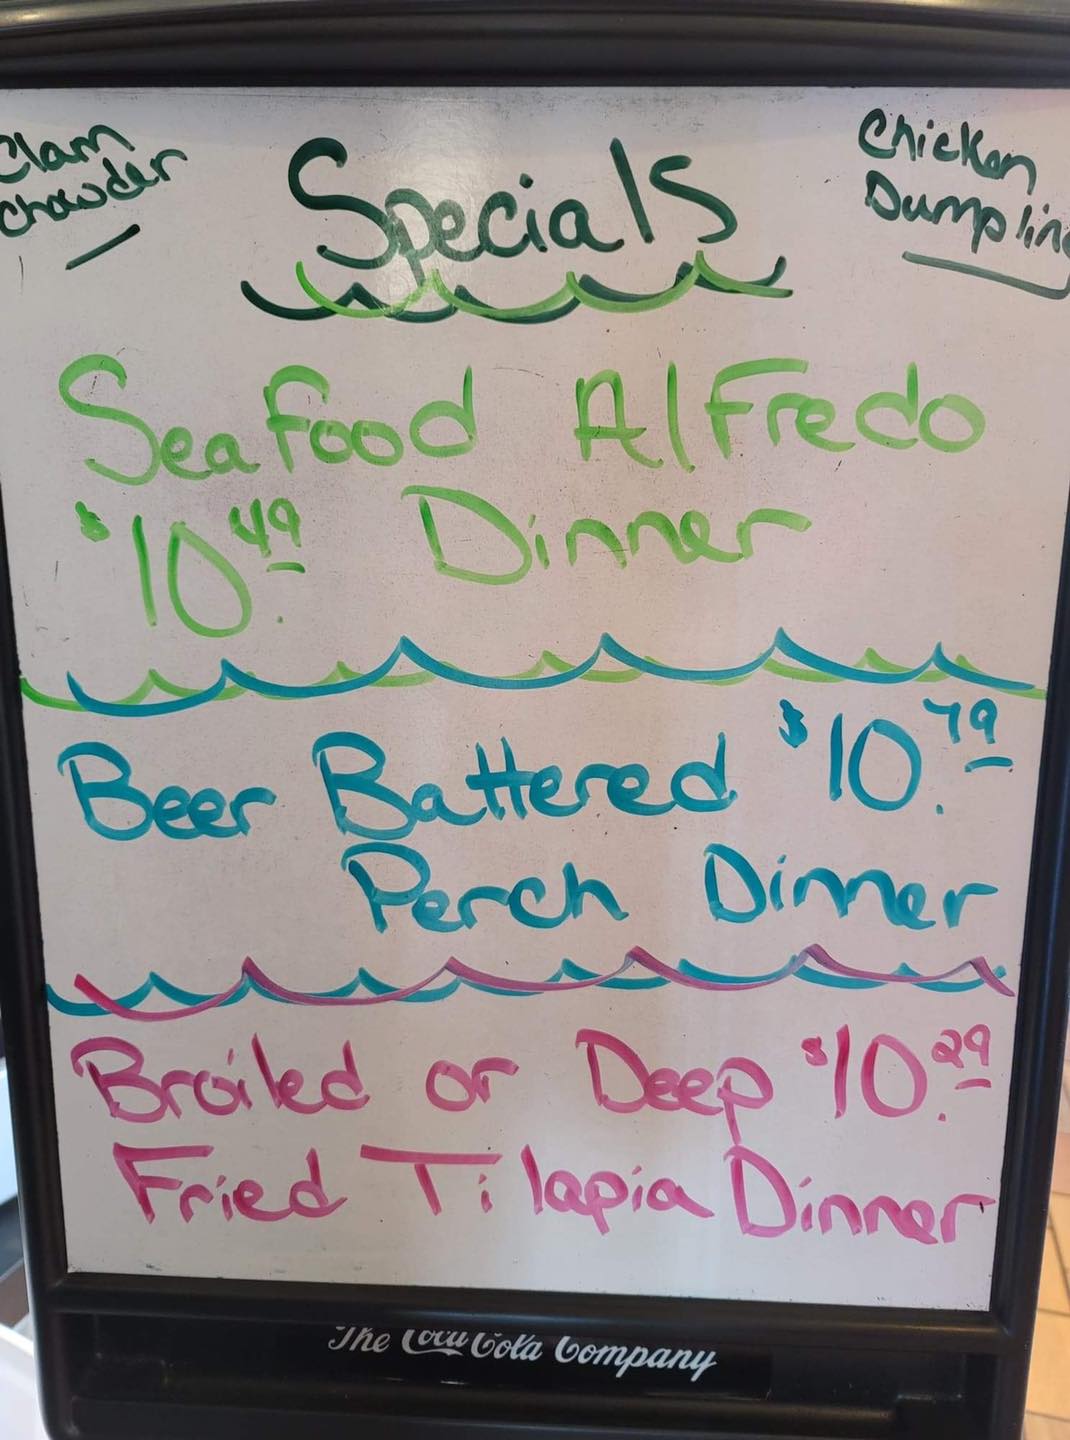 Clam
Chowder
Specials
Chicken
Dumpling
Seafood Alfredo
$10.49 Dinner
Beer Battered $10.79
Perch Dinner
Broiled or Deep $10.29
Fried Tilapia Dinner
The Coca Cola Company